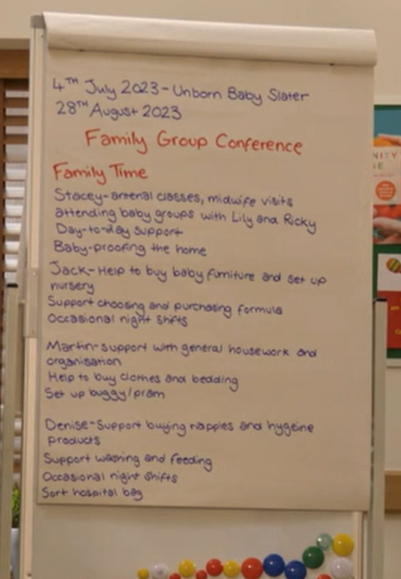 4TH July 2023 - Unborn Baby Slater
28TH August 2023
Family Group Conference
Family Time
Stacey - antenal classes, midwife visits
attending baby groups with Lily and Ricky
Day-to-day support
Baby-proofing the home
Jack - Help to buy baby furniture and set up
nursery
Support choosing and purchasing formula
Occasional night shifts
Martin - Support with general housework and
organisation
Help to buy clothes and bedding
Set up buggy/pram
Denise - Support buying nappies and hygeine
products
Support washing and feeding
Occasional night shifts
Sort hospital bag
NITY